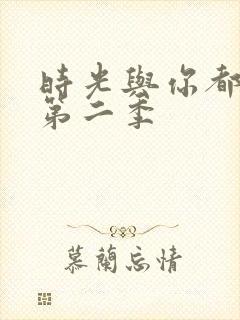 時光與你都
第二季
慕蘭忘情